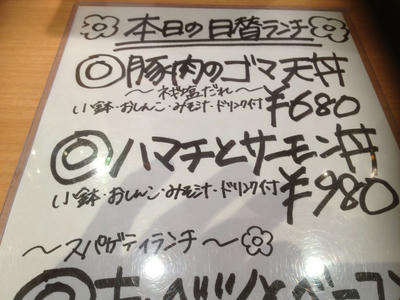 本日の日替ランチ
◎豚肉のゴマ天丼
～ネギ塩だれ～
小鉢・おしんこ・みそ汁・ドリンク付 ¥680
◎ハマチとサーモン丼
小鉢・おしんこ・みそ汁・ドリンク付 ¥980
～スパゲティランチ～